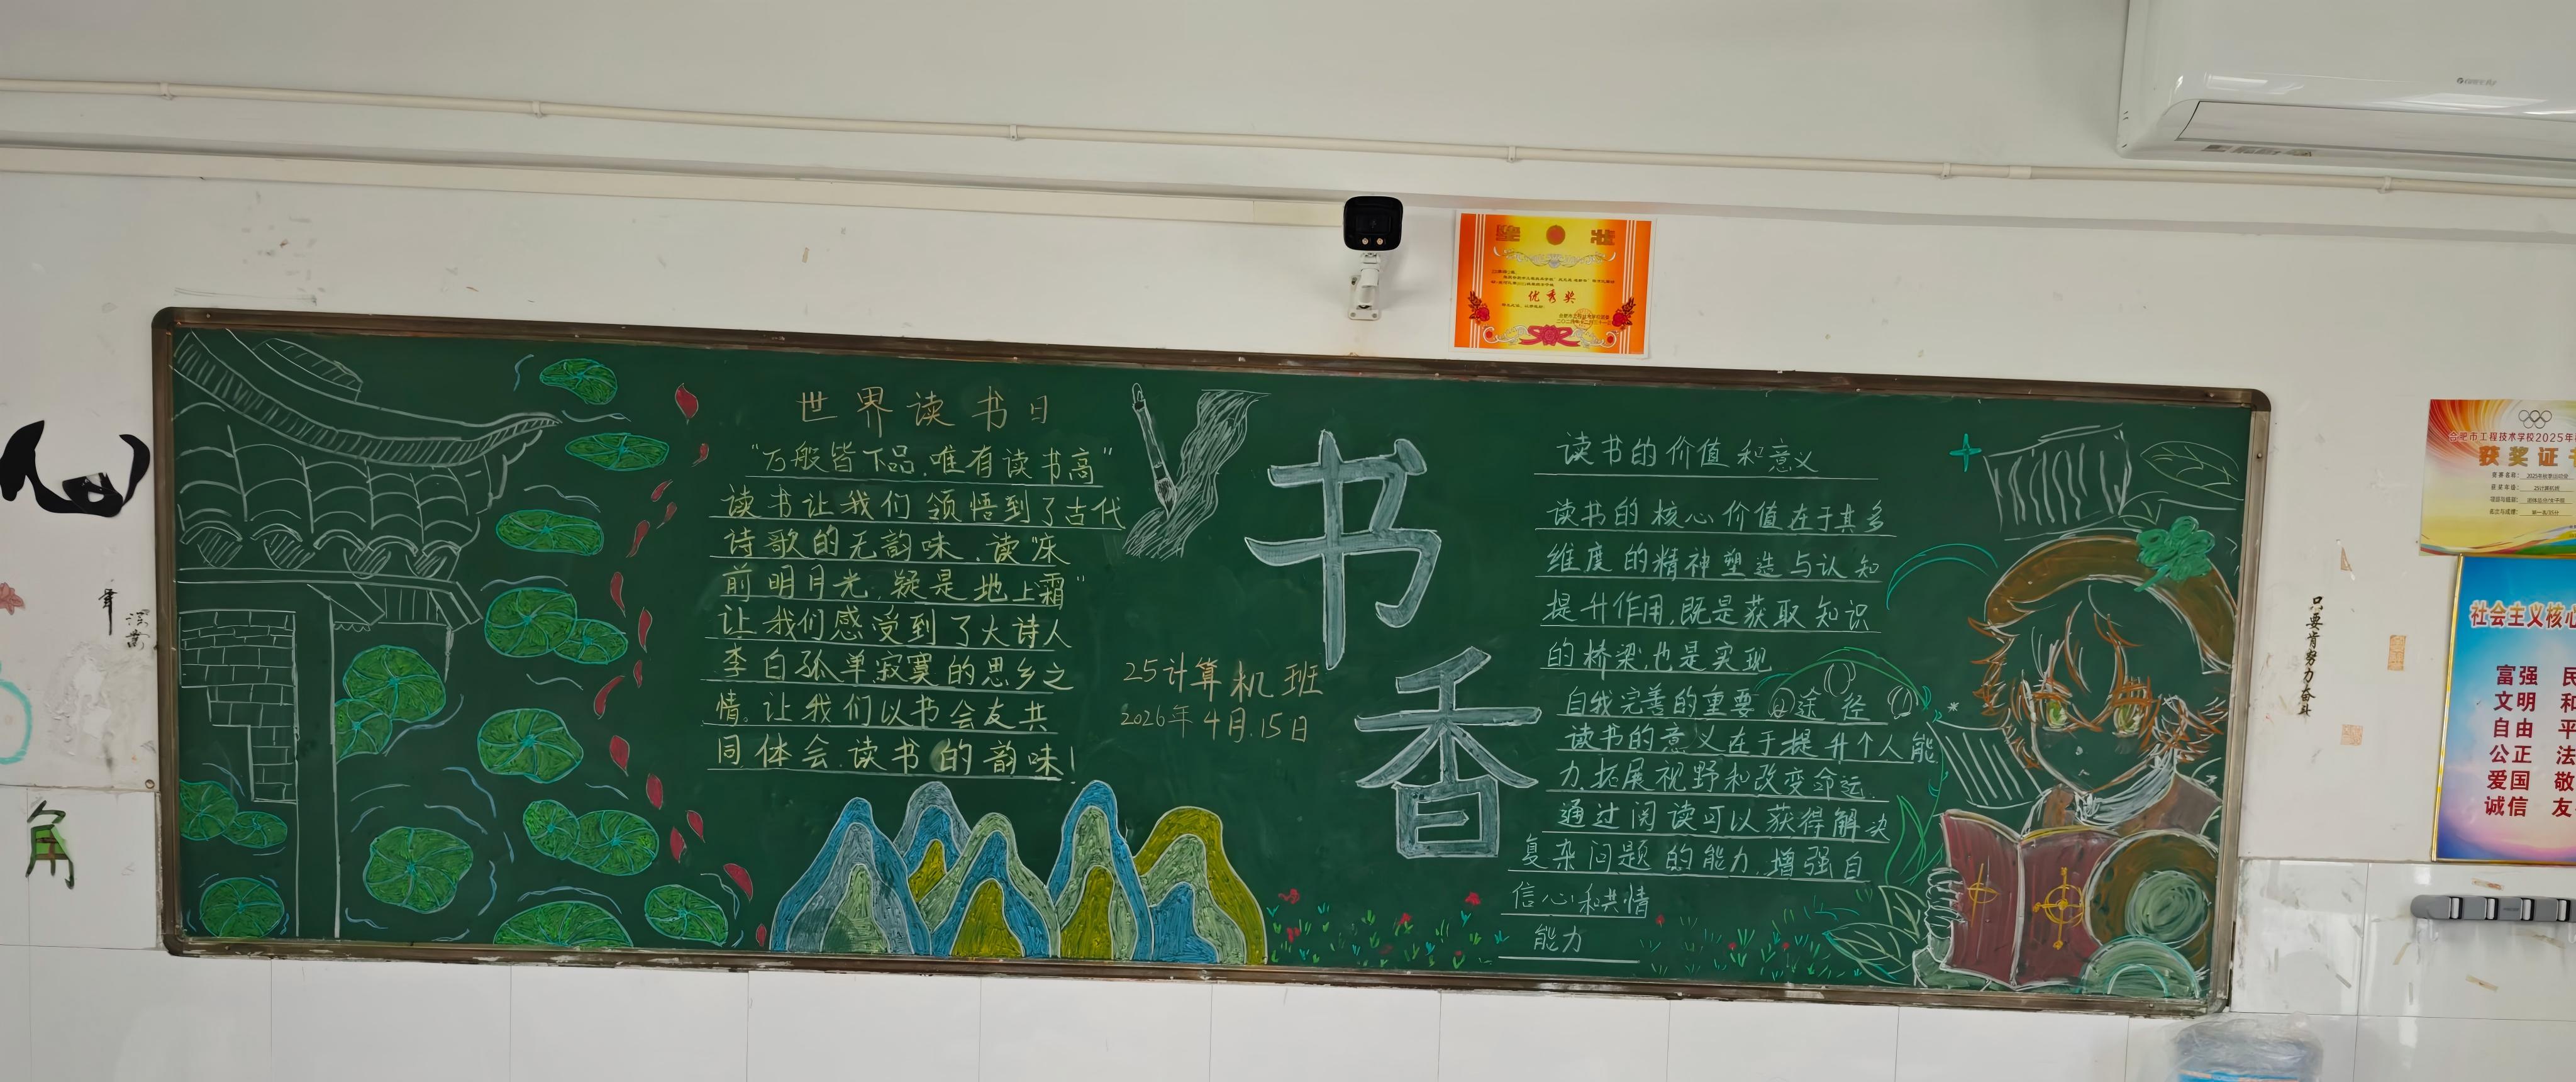 世界读书日
“万般皆下品，唯有读书高”
读书让我们领悟到了古代
诗歌的无韵味，读“床
前明月光，疑是地上霜”
让我们感受到了大诗人
李白孤单寂寞的思乡之
情。让我们以书会友共
同体会读书的韵味！
25计算机班
2026年4月.15日
书
香
读书的价值和意义
读书的核心价值在于其多
维度的精神塑造与认知
提升作用，既是获取知识
的桥梁，也是实现
自我完善的重要途径
读书的意义在于提升个人能
力，拓展视野和改变命运，
通过阅读可以获得解决
复杂问题的能力，增强自
信心和共情
能力
奖状
优秀奖
合肥市工程技术学校2025年
获奖证书
25计算机班
社会主义核心
富强 民
文明 和
自由 平
公正 法
爱国 敬
诚信 友
只要肯努力奋斗
角